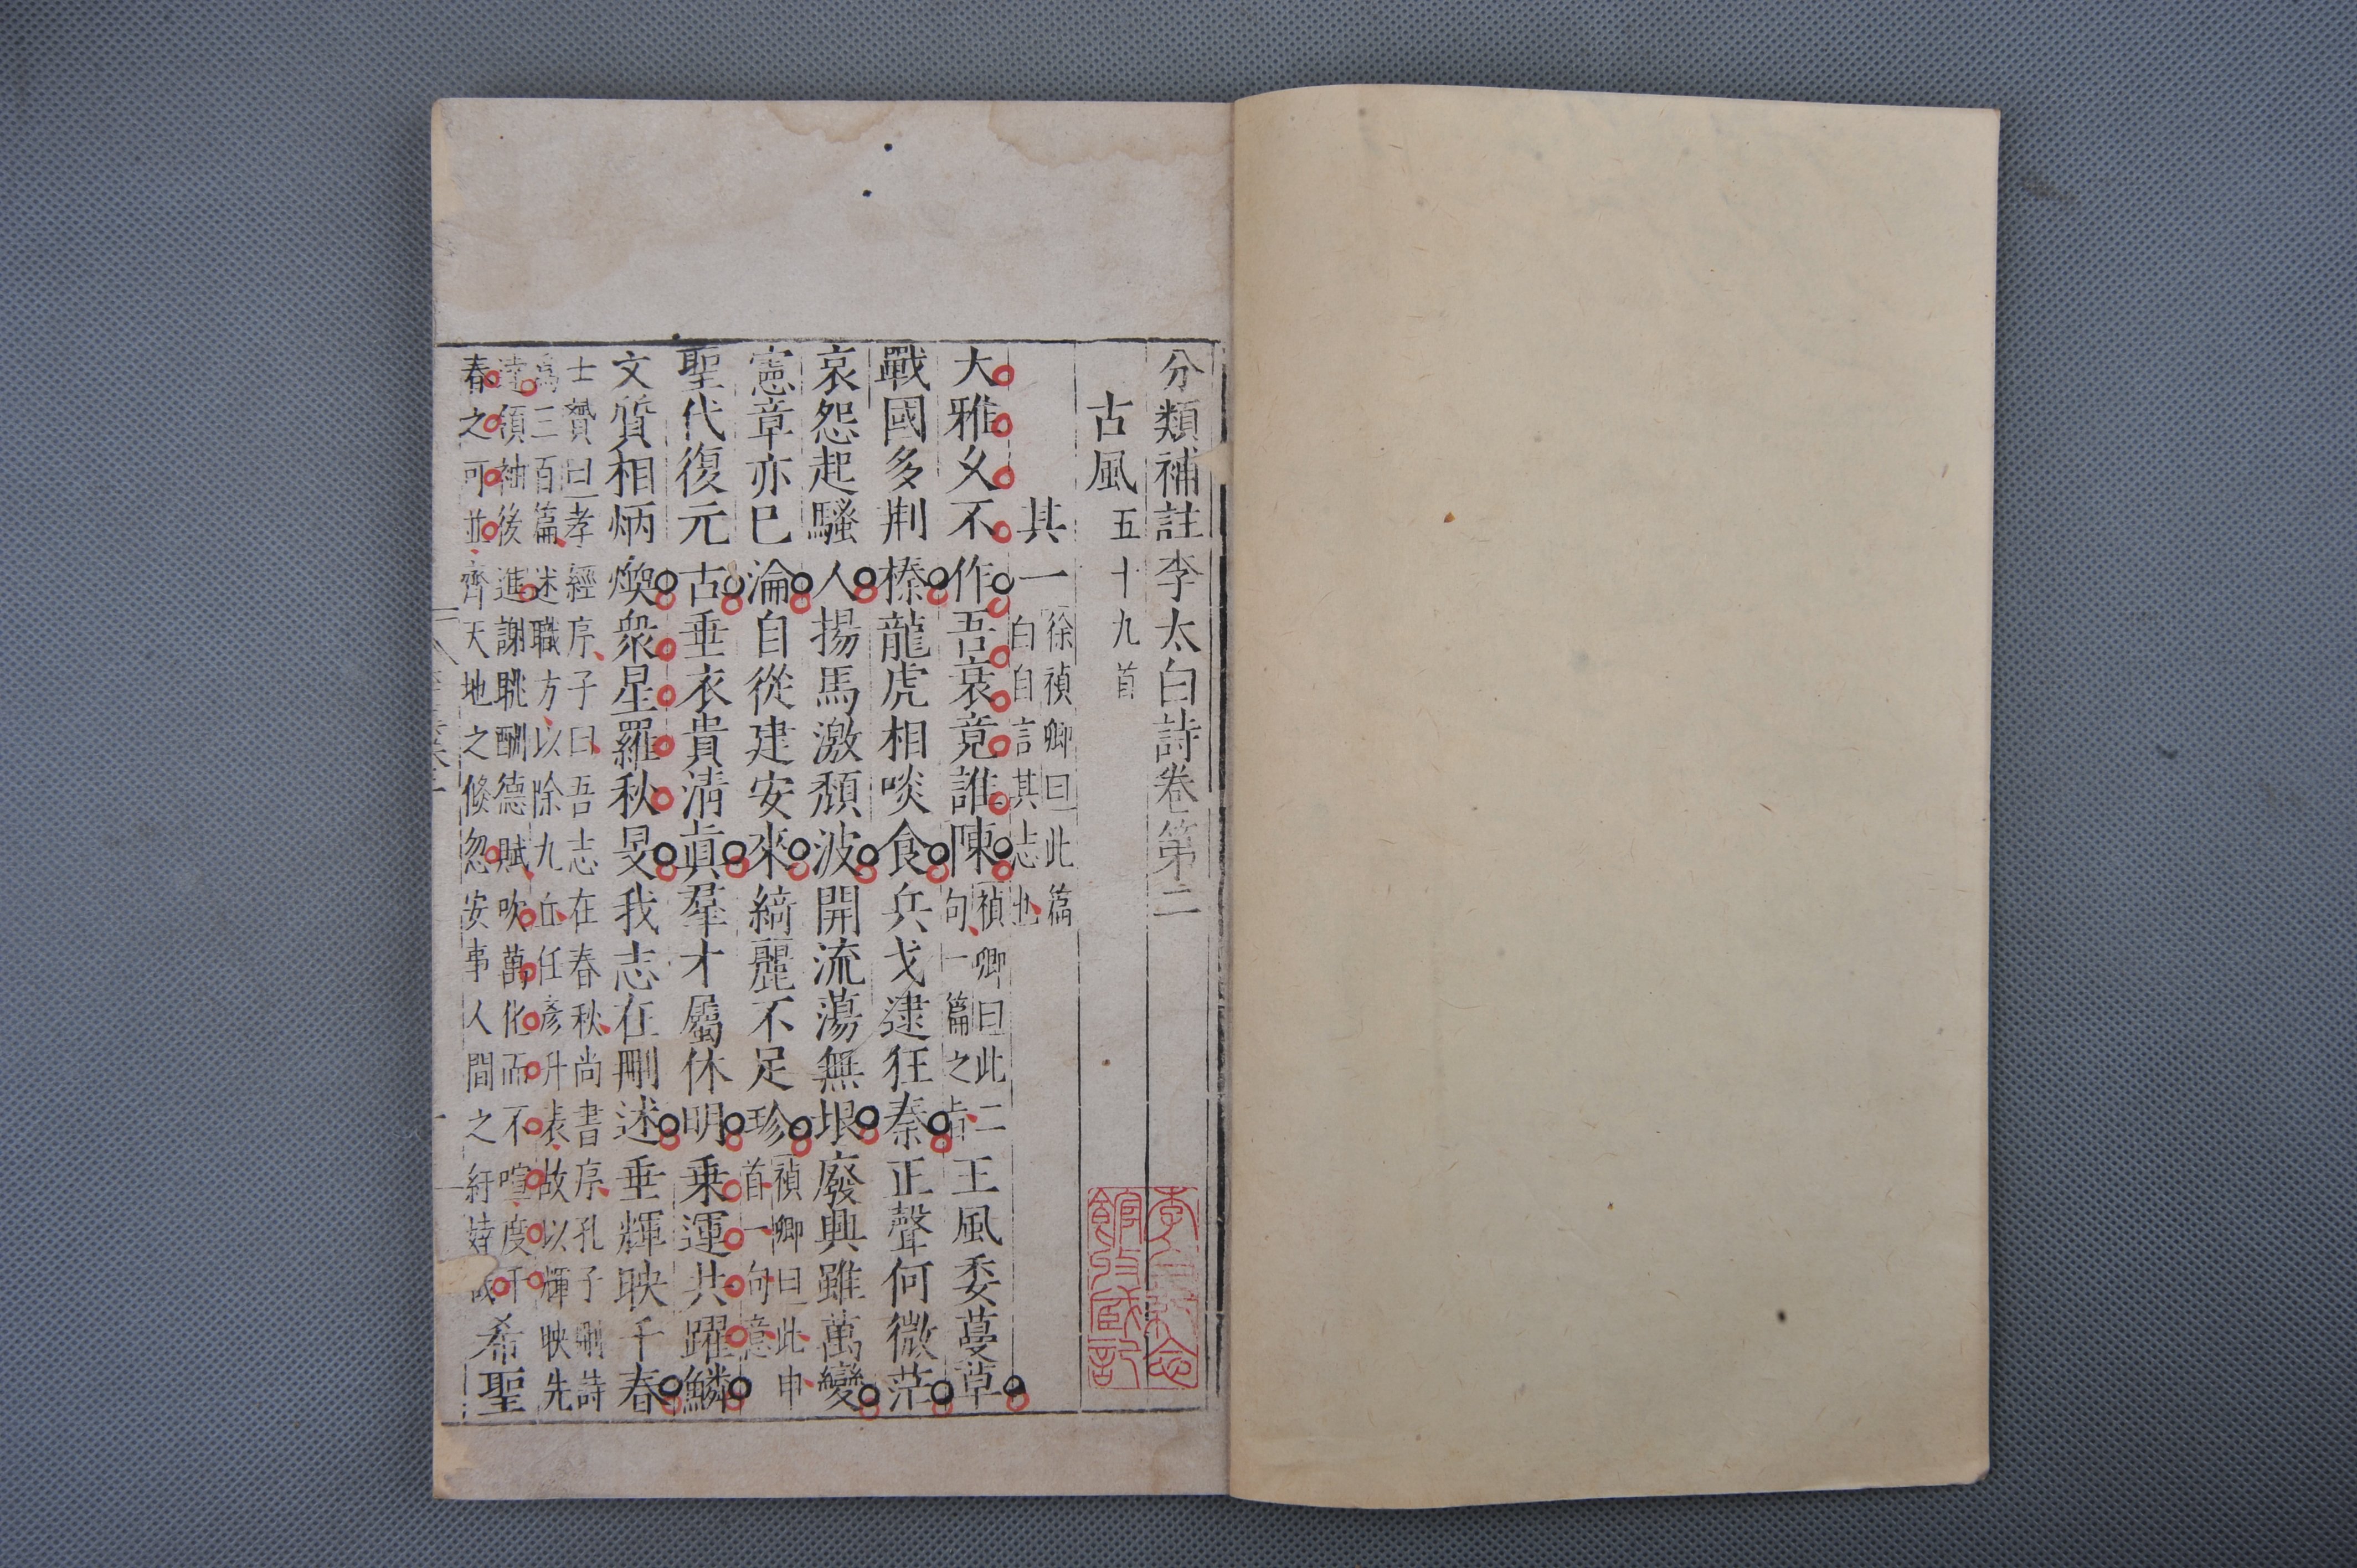 分類補註李太白詩卷第二
古風五十九首
其一徐禎卿曰此篇
白自言其志也
大雅久不作吾衰竟誰陳禎卿曰此二
句一篇之旨王風委蔓草
戰國多荆榛龍虎相啖食兵戈逮狂秦正聲何微茫
哀怨起騷人揚馬激頹波開流蕩無垠廢興雖萬變
憲章亦已淪自從建安來綺麗不足珍禎卿曰此申
首一句意
聖代復元古垂衣貴清眞羣才屬休明乗運共躍鱗
文質相炳煥衆星羅秋旻我志在刪述垂輝映千春
士贇曰孝經序子曰吾志在春秋尚書序孔子刪詩
爲三百篇述職方以除九丘任彥升表故以輝映先
達領袖後進謝眺酬德賦吹萬化而不喧度千
春之可並齊天地之倐忽安事人間之紆
希聖
館收藏記